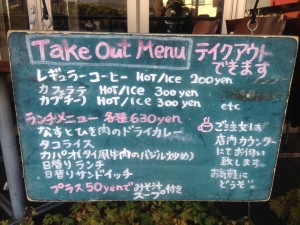 Take Out Menu テイクアウトできます
レギュラーコーヒー HOT/ICE 200yen
カフェラテ HOT/ICE 300yen
カプチーノ HOT/ICE 300yen
etc
ランチメニュー 各種630yen
なすとひき肉のドライカレー
タコライス
ガパオ(タイ風牛肉のバジル炒め)
日替りランチ
日替りサンドイッチ
プラス50yenでみそ汁スープ付き
ご注文は
店内カウンター
にてお伺い
致します。
お気軽に
どうぞ